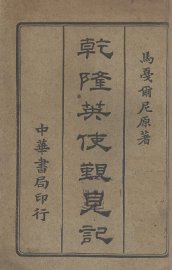 馬戞爾尼原著
乾隆英使覲見記
中華書局印行